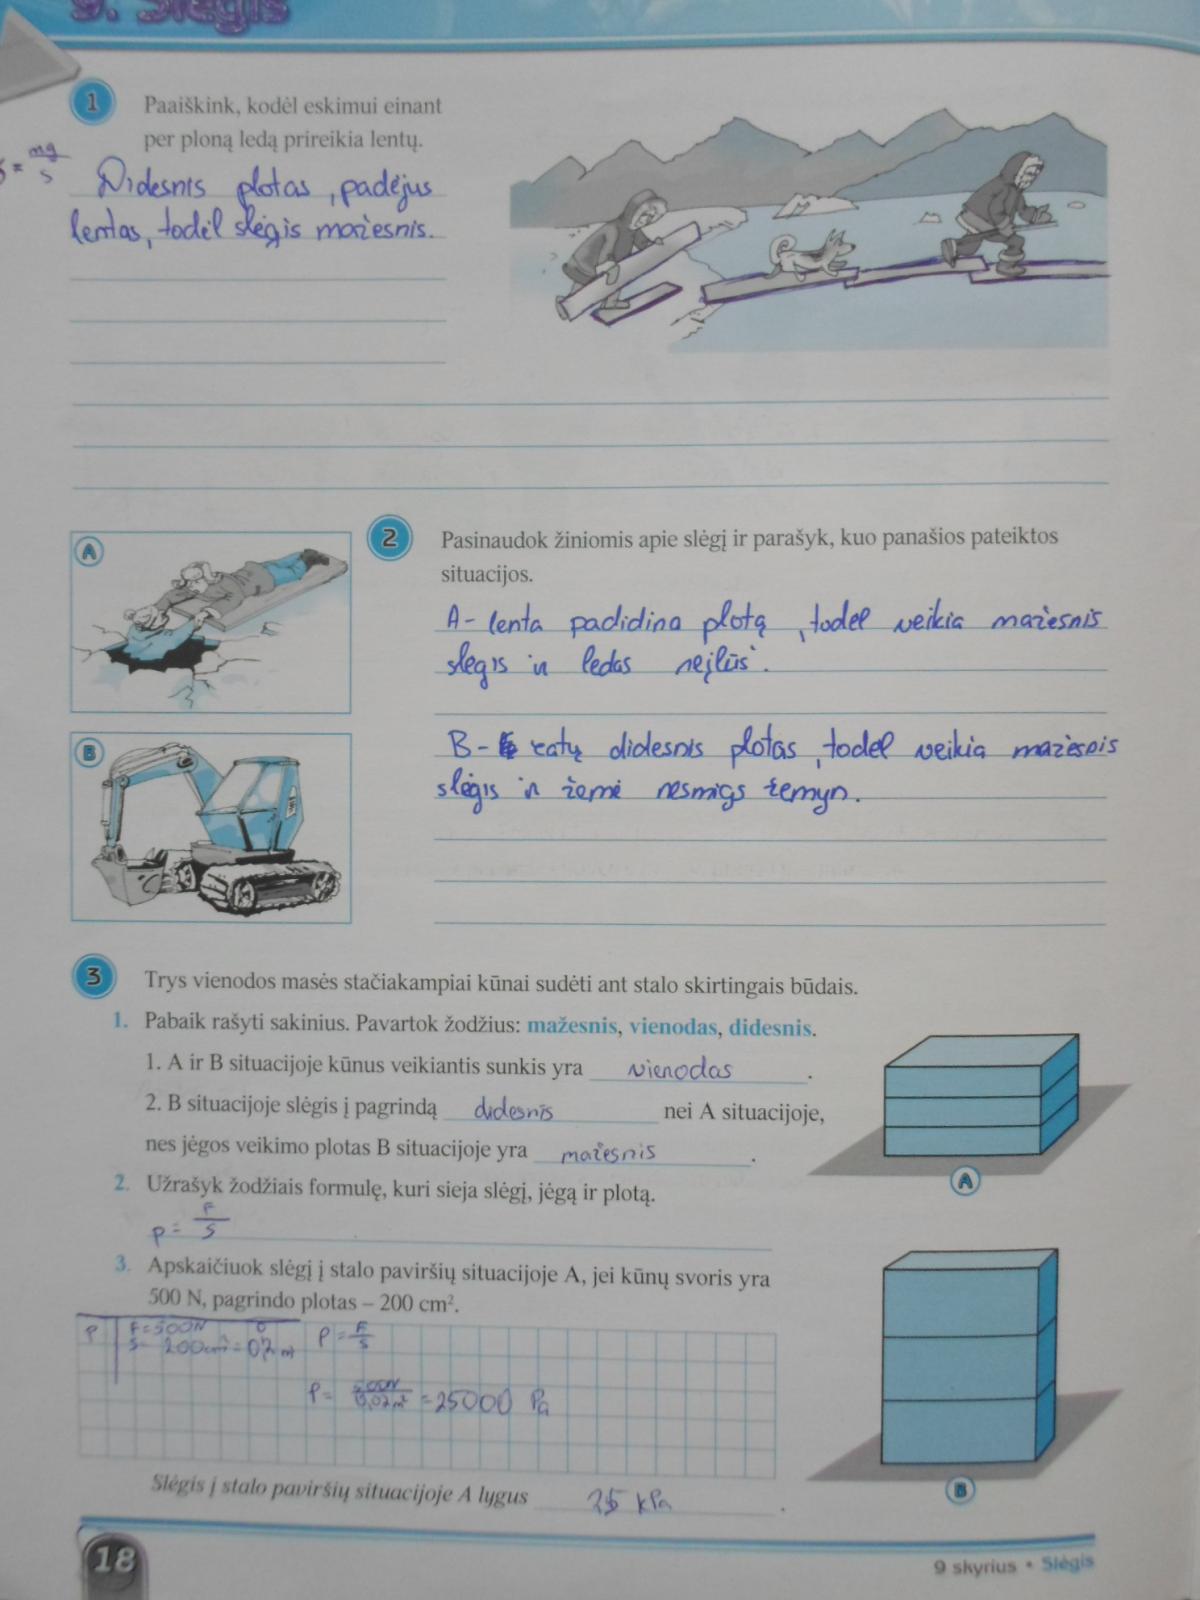 9. Slėgis
1
Paaiškink, kodėl eskimui einant
per ploną ledą prireikia lentų.
mg
s
Didesnis plotas, padėjus
lentas, todėl slėgis mažesnis.
A
2
Pasinaudok žiniomis apie slėgį ir parašyk, kuo panašios pateiktos
situacijos.
A- lenta padidina plotą, todėl veikia mažesnis
slėgis ir ledas neįlūš.
B
B- ratų didesnis plotas, todėl veikia mažesnis
slėgis ir žemė nesmigs žemyn.
3
Trys vienodos masės stačiakampiai kūnai sudėti ant stalo skirtingais būdais.
1. Pabaik rašyti sakinius. Pavartok žodžius: mažesnis, vienodas, didesnis.
1. A ir B situacijoje kūnus veikiantis sunkis yra vienodas.
2. B situacijoje slėgis į pagrindą didesnis nei A situacijoje,
nes jėgos veikimo plotas B situacijoje yra mažesnis.
A
2. Užrašyk žodžiais formulę, kuri sieja slėgį, jėgą ir plotą.
p = F/s
3. Apskaičiuok slėgį į stalo paviršių situacijoje A, jei kūnų svoris yra
500 N, pagrindo plotas – 200 cm².
P F=500N P = F/s
S= 200cm²=
P = 500N/0,02m² = 25000 Pa
Slėgis į stalo paviršių situacijoje A lygus 25 kPa.
B
18
9 skyrius • Slėgis